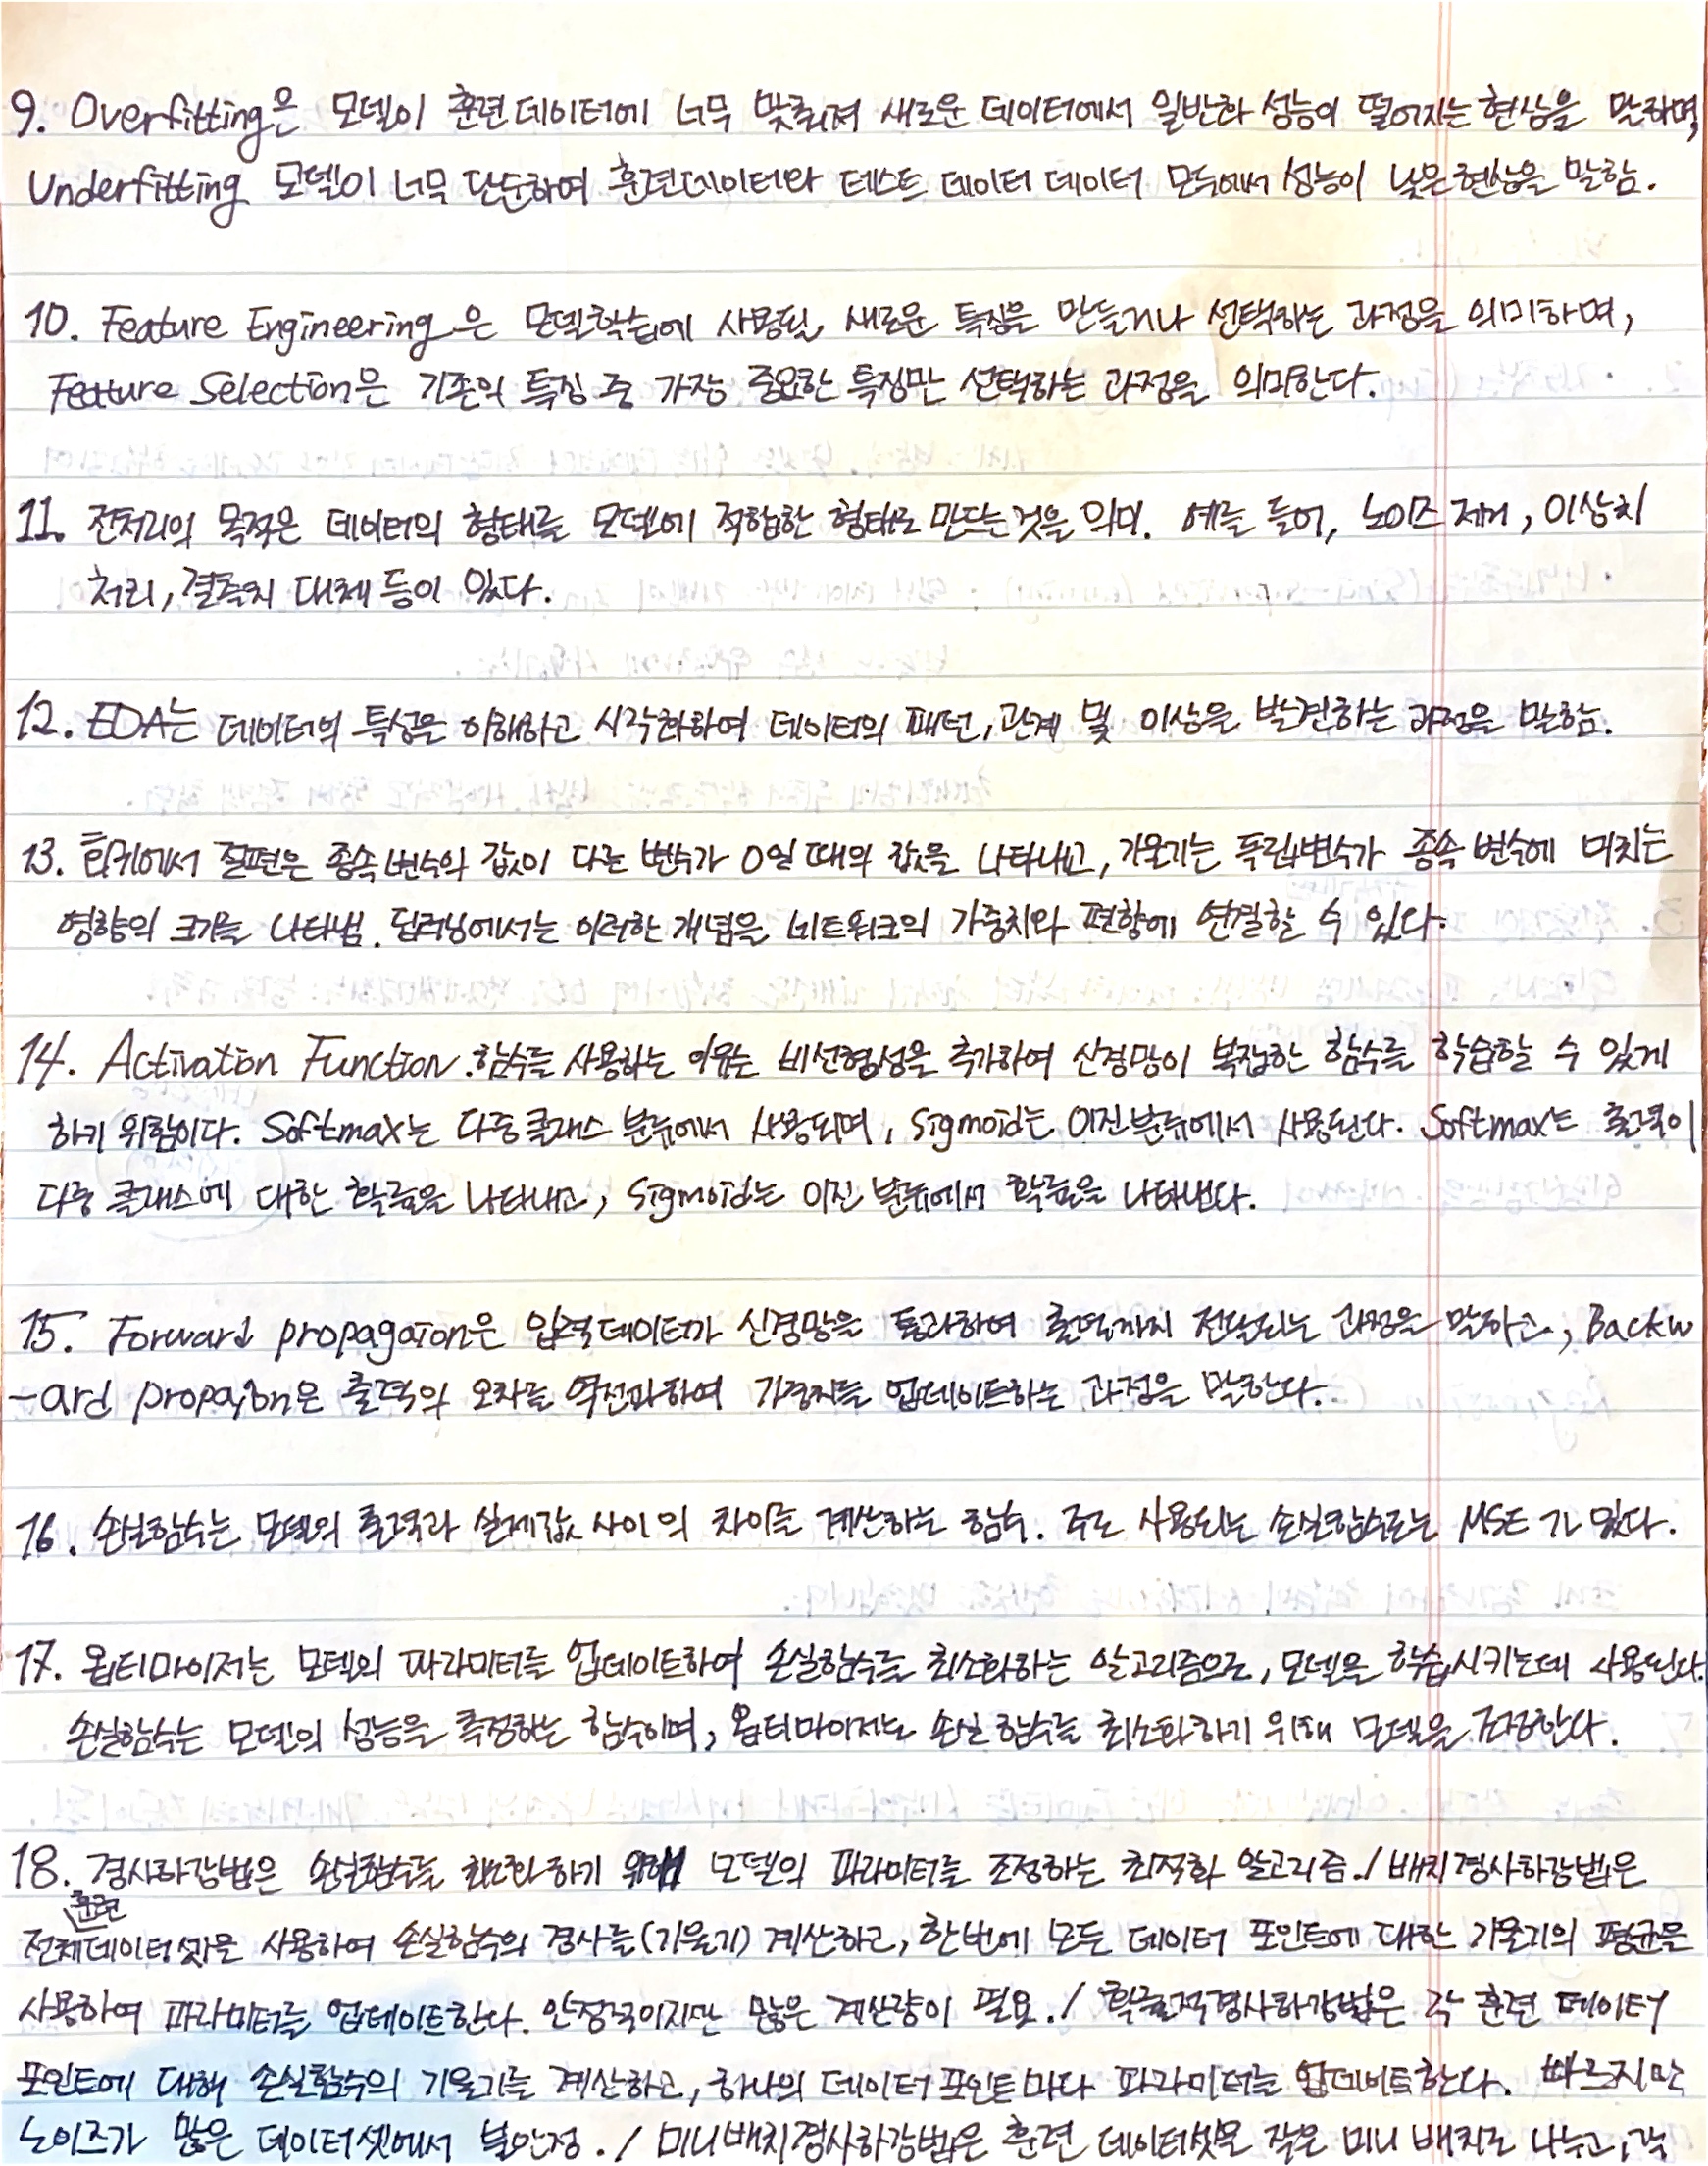 9. Overfitting은 모델이 훈련 데이터에 너무 맞춰져 새로운 데이터에서 일반화 성능이 떨어지는 현상을 말하며,
Underfitting 모델이 너무 단순하여 훈련데이터와 테스트 데이터 데이터 모두에서 성능이 낮은 현상을 말함.
10. Feature Engineering은 모델학습에 사용될 새로운 특징을 만들거나 선택하는 과정을 의미하며,
Feature Selection은 기존의 특징 중 가장 중요한 특징만 선택하는 과정을 의미한다.
11. 전처리의 목적은 데이터의 형태를 모델에 적합한 형태로 만드는것을 의미. 예를 들어, 노이즈 제거, 이상치
처리, 결측치 대체 등이 있다.
12. EDA는 데이터의 특성을 이해하고 시각화하여 데이터의 패턴, 관계 및 이상을 발견하는 과정을 말함.
13. 회귀에서 절편은 종속변수의 값이 다른 변수가 0일 때의 값을 나타내고, 기울기는 독립변수가 종속 변수에 미치는
영향의 크기를 나타냄. 딥러닝에서는 이러한 개념을 네트워크의 가중치와 편향에 연결할 수 있다.
14. Activation Function.함수를 사용하는 이유는 비선형성을 추가하여 신경망이 복잡한 함수를 학습할 수 있게
하기 위함이다. Softmax는 다중클래스 분류에서 사용되며, sigmoid는 이진분류에서 사용된다. Softmax는 출력이
다중 클래스에 대한 확률을 나타내고, sigmoid는 이진 분류에서 확률을 나타낸다.
15. Forward propagaion은 입력데이터가 신경망을 통과하여 출력까지 전달되는 과정을 말하고, Backw
-ard propagaion은 출력의 오차를 역전파하여 가중치를 업데이트하는 과정을 말한다.
16. 손실함수는 모델의 출력과 실제값 사이의 차이를 계산하는 함수. 주로 사용되는 손실함수로는 MSE가 있다.
17. 옵티마이저는 모델의 파라미터를 업데이트하여 손실함수를 최소화하는 알고리즘으로, 모델을 학습시키는데 사용된다.
손실함수는 모델의 성능을 측정하는 함수이며, 옵티마이저는 손실 함수를 최소화하기 위해 모델을 조정한다.
18. 경사하강법은 손실함수를 최소화하기 위해 모델의 파라미터를 조정하는 최적화 알고리즘./ 배치경사하강법은
훈련
전체데이터셋을 사용하여 손실함수의 경사를(기울기) 계산하고, 한번에 모든 데이터 포인트에 대한 기울기의 평균을
사용하여 파라미터를 업데이트한다. 안정적이지만 많은 계산량이 필요./ 확률적경사하강법은 각 훈련 데이터
포인트에 대해 손실함수의 기울기를 계산하고, 하나의 데이터 포인트마다 파라미터를 업데이트한다. 빠르지만
노이즈가 많은 데이터셋에서 불안정./ 미니배치경사하강법은 훈련 데이터셋을 작은 미니 배치로 나누고, 각